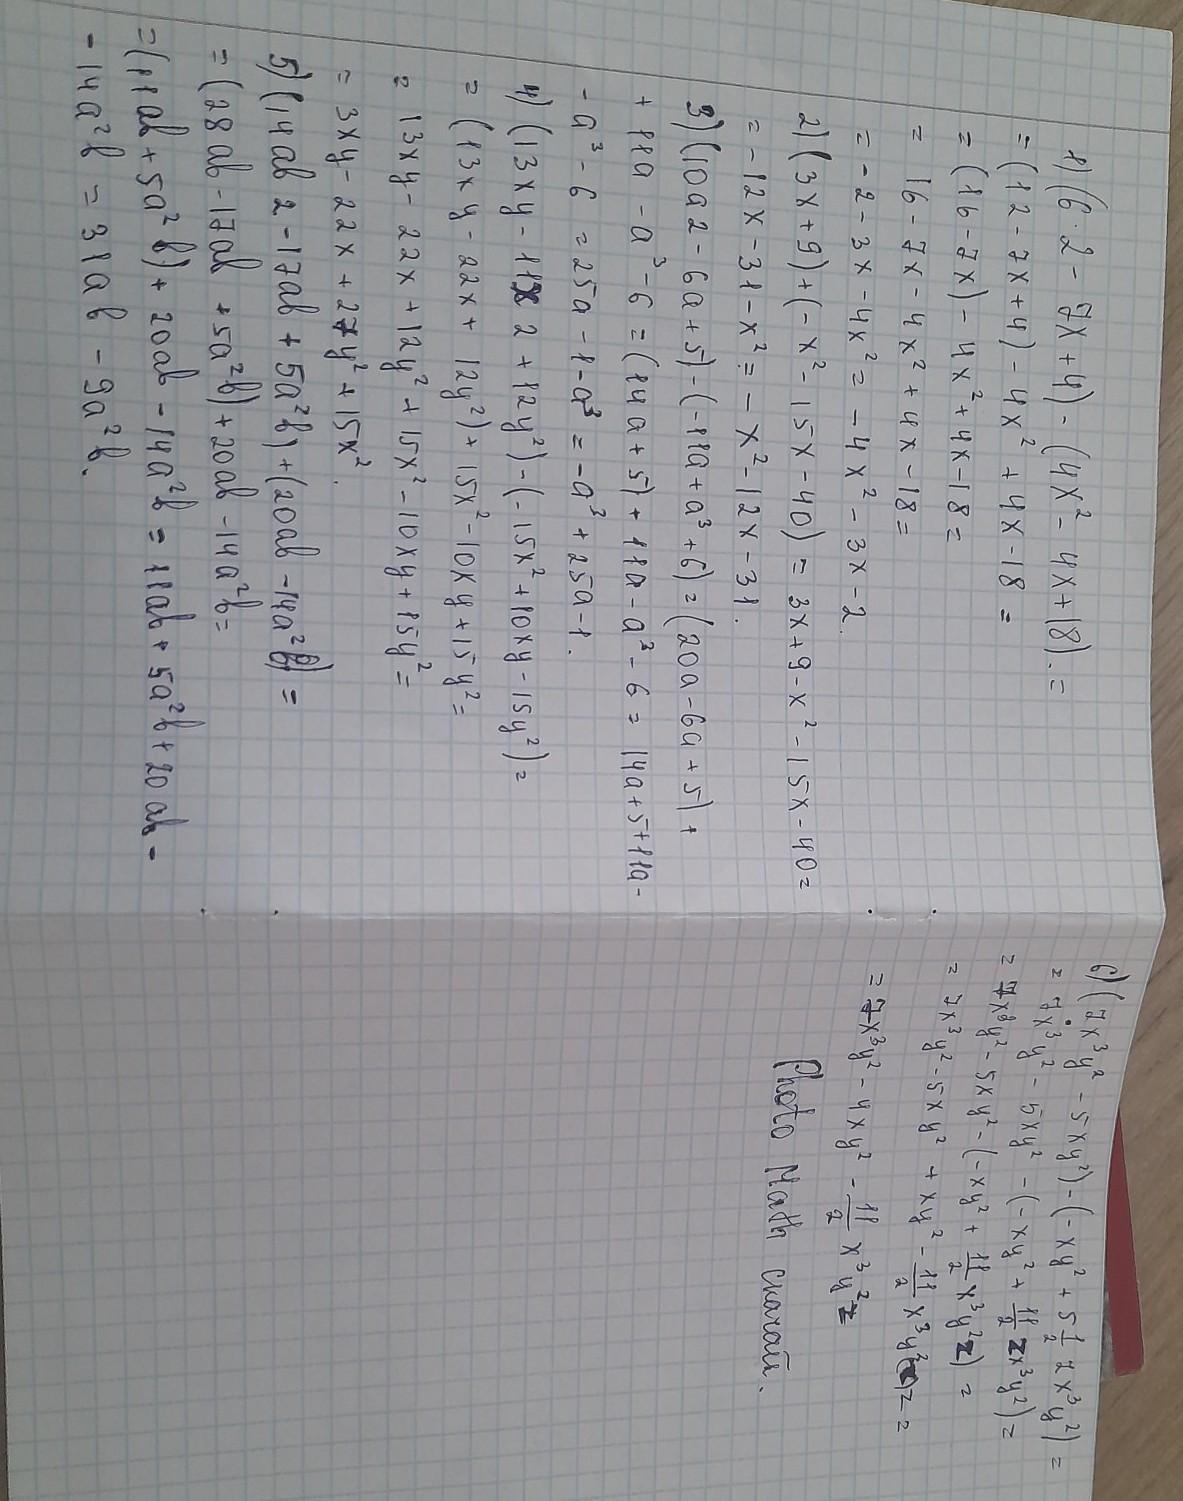 1) (6·2 - 7x + 4) - (4x² - 4x + 18). =
= (12 - 7x + 4) - 4x² + 4x - 18 =
= (16 - 7x) - 4x² + 4x - 18 =
= 16 - 7x - 4x² + 4x - 18 =
= -2 - 3x - 4x² = -4x² - 3x - 2.
2) (3x + 9) + (-x² - 15x - 40) = 3x + 9 - x² - 15x - 40 =
= -12x - 31 - x² = -x² - 12x - 31.
3) (10a2 - 6a + 5) - (-11a + a³ + 6) = (20a - 6a + 5) +
+ 11a - a³ - 6 = (14a + 5) + 11a - a³ - 6 = 14a + 5 + 11a -
- a³ - 6 = 25a - 1 - a³ = -a³ + 25a - 1.
4) (13xy - 11x2 + 12y²) - (-15x² + 10xy - 15y²) =
= (13xy - 22x + 12y²) + 15x² - 10xy + 15y² =
= 13xy - 22x + 12y² + 15x² - 10xy + 15y² =
= 3xy - 22x + 27y² + 15x².
5) (14ab2 - 17ab + 5a²b) + (20ab - 14a²b) =
= (28ab - 17ab + 5a²b) + 20ab - 14a²b =
= (11ab + 5a²b) + 20ab - 14a²b = 11ab + 5a²b + 20ab -
- 14a²b = 31ab - 9a²b.
6) (7x³y² - 5xy²) - (-xy² + 5 1/2 zx³y²) =
= 7x³y² - 5xy² - (-xy² + 11/2 zx³y²) =
= 7x³y² - 5xy² - (-xy² + 11/2 x³y²z) =
= 7x³y² - 5xy² + xy² - 11/2 x³y²z =
= 7x³y² - 4xy² - 11/2 x³y²z
Photo Math скачай.